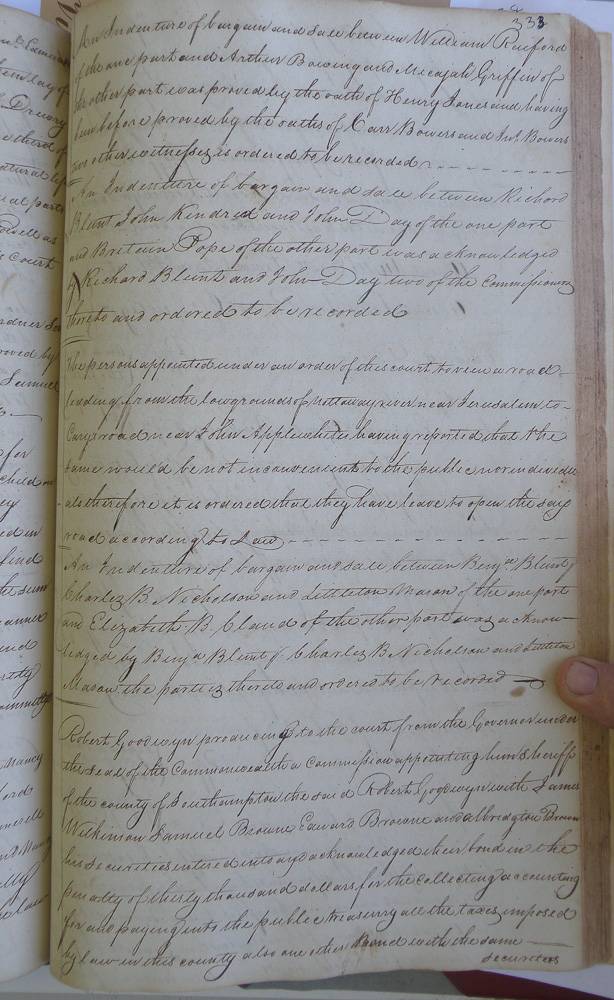 333
An Indenture of bargain and sale between William Raiford
of the one part and Arthur Bowing and Micajah Griffin of
the other part was proved by the oath of Henry Jones and having
been before proved by the oaths of Carr Bowers and Jno. Bowers
two other witnesses is ordered to be recorded
An Indenture of bargain and sale between Richard
Blunt John Kindred and John Day of the one part
and Britain Pope of the other part was acknowledged
by Richard Blunt and John Day two of the Commissioners
thereto and ordered to be recorded
The persons appointed under an order of this court to view a road
leading from the lowgrounds of Nottoway river near Jerusalem to
Carys road near John Applewhites having reported that the
same would be not inconvenient to the public nor individu
als therefore it is ordered that they have leave to open the said
road according to Law
An Indenture of bargain and sale between Benja. Blunt
Charles B. Nicholson and Littleton Mason of the one part
and Elizabeth B. Claud of the other part was acknow
ledged by Benja Blunt Charles B Nicholson and Littleton
Mason the parties thereto and ordered to be recorded
Robert Goodwyn producing to the court from the Governor under
the seal of the Commonwealth a Commission appointing him Sheriff
of the county of Southampton the said Robert Goodwyn with James
Wilkinson Samuel Browne Edward Browne and Albridgton Brown
his securities entered into and acknowledged their bond in the
penalty of thirty thousand dollars for the collecting accounting
for and paying into the public treasury all the taxes imposed
by law in this county also one other Bond with the same
securities